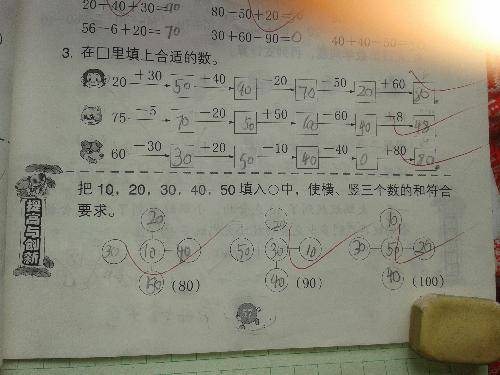 20+40+30=90
80-50+20=
56-6+20=70
30+60-90=0
40+40-50
3. 在□里填上合适的数。
20 +30 50 +40 90 -20 70 -50 20 +60 80
75 -5 70 -20 50 +50 100 -60 40 +8 48
60 -30 30 +20 50 -10 40 -40 0 +80 80
提高与创新
把 10，20，30，40，50 填入○中，使横、竖三个数的和符合
要求。
20 20 10
30 10 40 50 30 10 30 50 20
50 (80) 40 (90) 40 (100)